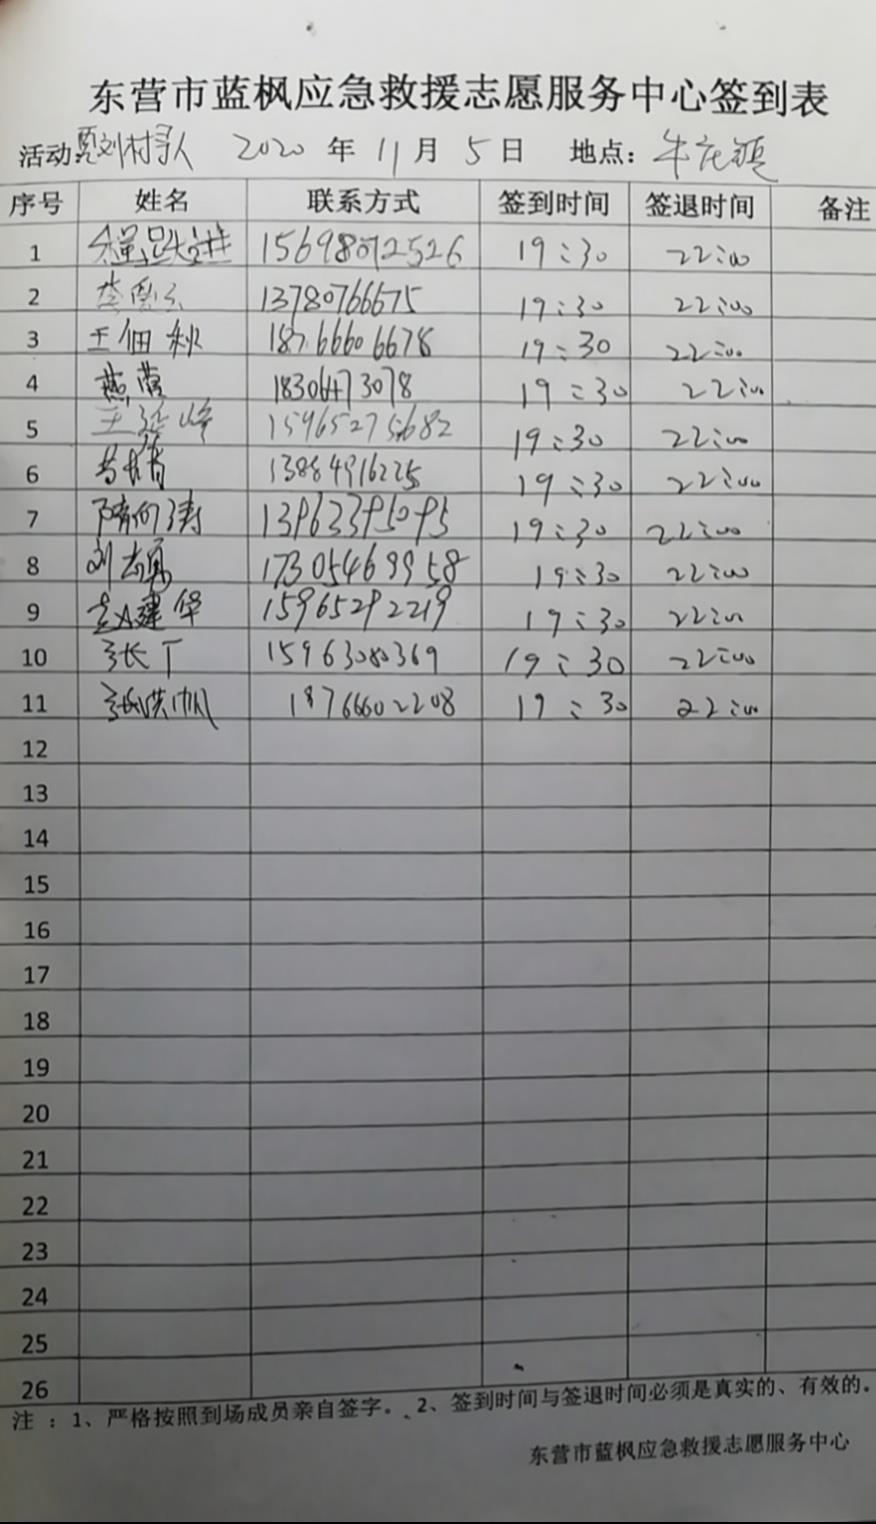 东营市蓝枫应急救援志愿服务中心签到表
活动: 刘村寻人 2020 年 11 月 5 日 地点: 牛庄镇
序号 姓名 联系方式 签到时间 签退时间 备注
1 15698072526 19:30 22:00
2 13780766675 19:30 22:00
3 王佃秋 18766606678 19:30 22:00
4 燕营 18306473078 19:30 22:00
5 王延峰 15965275682 19:30 22:00
6 13884916225 19:30 22:00
7 隋向涛 13963395095 19:30 22:00
8 刘志勇 17305469958 19:30 22:00
9 赵建华 15965292219 19:30 22:00
10 张丁 15963080369 19:30 22:00
11 张洪帆 18766602208 19:30 22:00
12
13
14
15
16
17
18
19
20
21
22
23
24
25
26
注 : 1、严格按照到场成员亲自签字。、2、签到时间与签退时间必须是真实的、有效的。
东营市蓝枫应急救援志愿服务中心